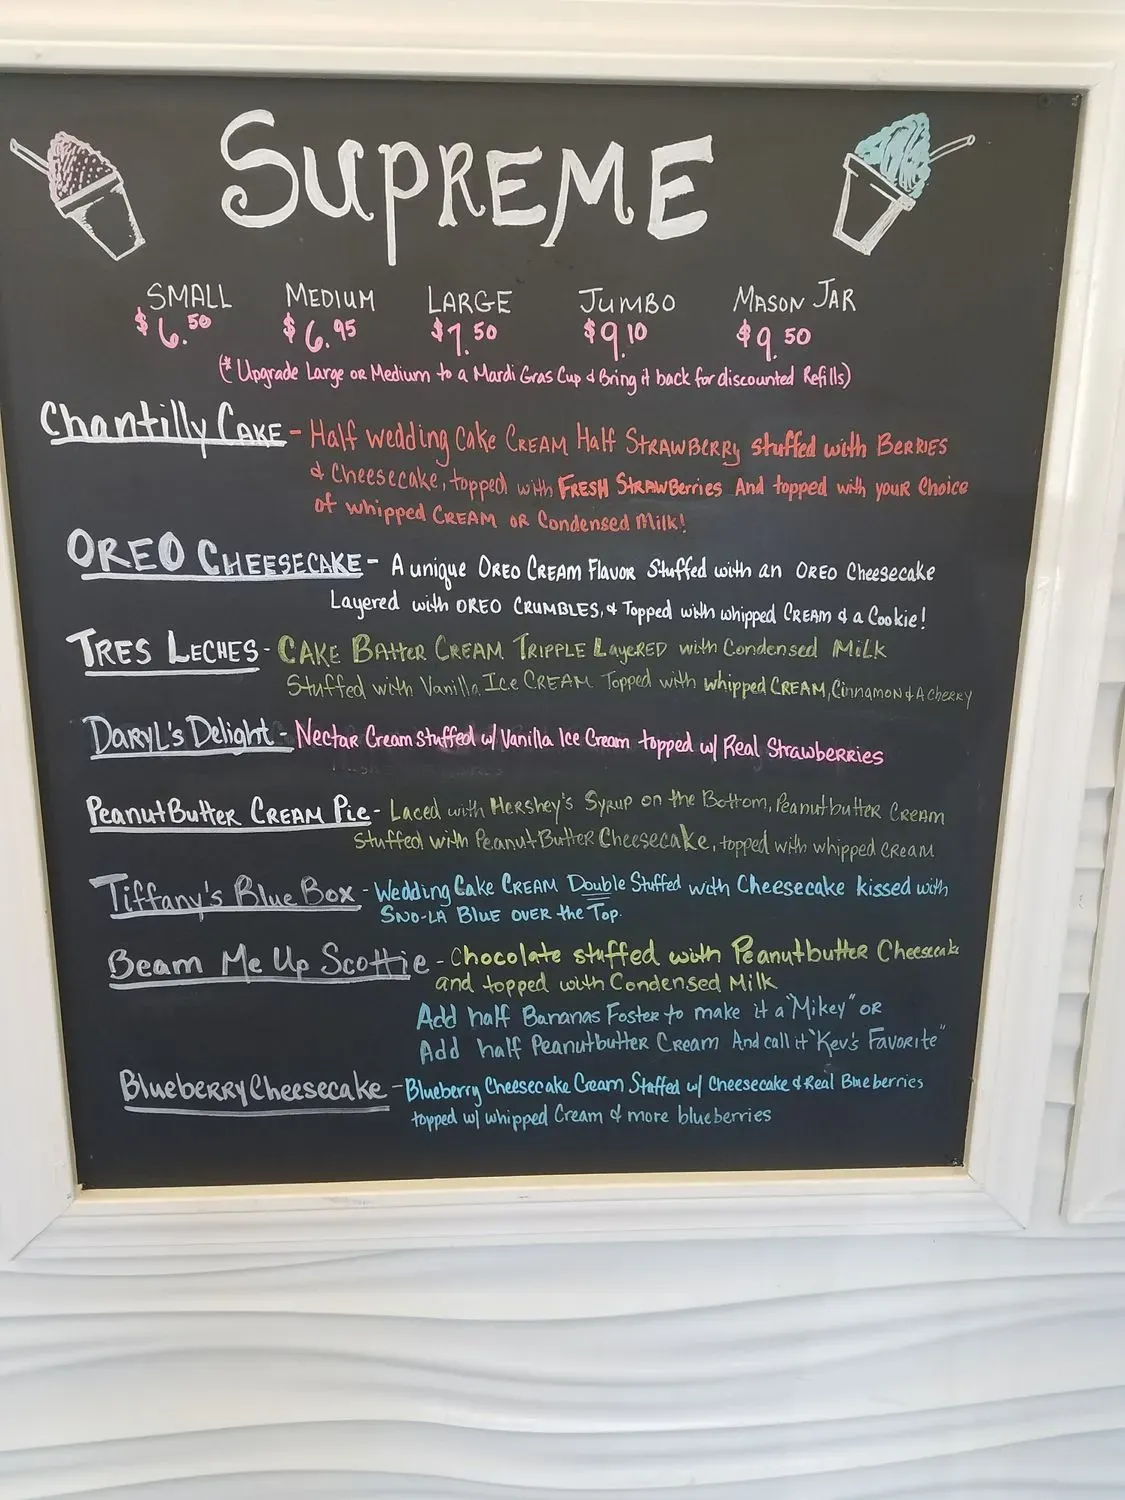 SUPREME
SMALL MEDIUM LARGE JUMBO MASON JAR
$6.50 $6.95 $7.50 $9.10 $9.50
(* Upgrade Large OR Medium to a Mardi Gras Cup & Bring it back for discounted Refills)
Chantilly CAKE - Half wedding Cake CREAM Half STRAWBERRY stuffed with BERRIES
& Cheesecake, topped with FRESH STRAWBerries And topped with youR Choice
of whipped CREAM OR Condensed Milk!
OREO CHEESECAKE - A unique OREO CREAM Flavor Stuffed with an OREO Cheesecake
Layered with OREO CRUMBLES, & Topped with whipped CREAM & a Cookie!
TRES LECHES - CAKE BAtter CREAM TRIPPLE LAyeRED with Condensed MiLK
Stuffed with Vanilla Ice CREAM Topped with whipped CREAM, Cinnamon & A CheRRY
DARYL'S Delight - Nectar Cream Stuffed w/ Vanilla Ice Cream topped w/ Real Strawberries
Peanut Butter CREAM Pie - Laced with Hershey's Syrup on the Bottom, Peanutbutter CREAM
Stuffed with Peanut Butter Cheesecake, topped with whipped CReam
Tiffany's Blue Box - Wedding Cake CREAM Double Stuffed with Cheesecake kissed with
SNO-LA BLUE OVER the Top.
Beam Me Up Scottie - Chocolate stuffed with Peanutbutter Cheesecake
and topped with Condensed Milk
Add half Bananas Foster to make it a "Mikey" OR
Add half Peanutbutter Cream And call it "Kev's Favorite"
Blueberry Cheesecake - Blueberry Cheesecake Cream Stuffed w/ Cheesecake & Real Blueberries
topped w/ whipped Cream & more blueberries